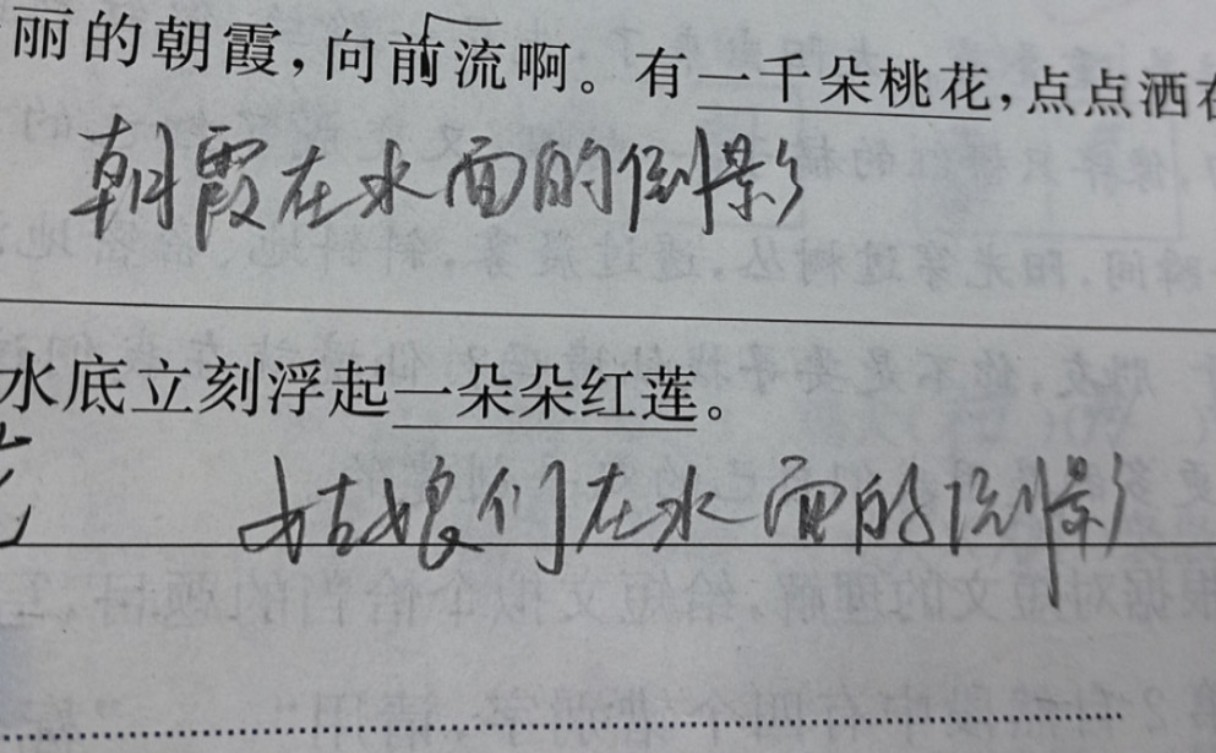 丽的朝霞，向前流啊。有一千朵桃花，点点洒在
朝霞在水面的倒影
水底立刻浮起一朵朵红莲。
姑娘们在水面的倒影